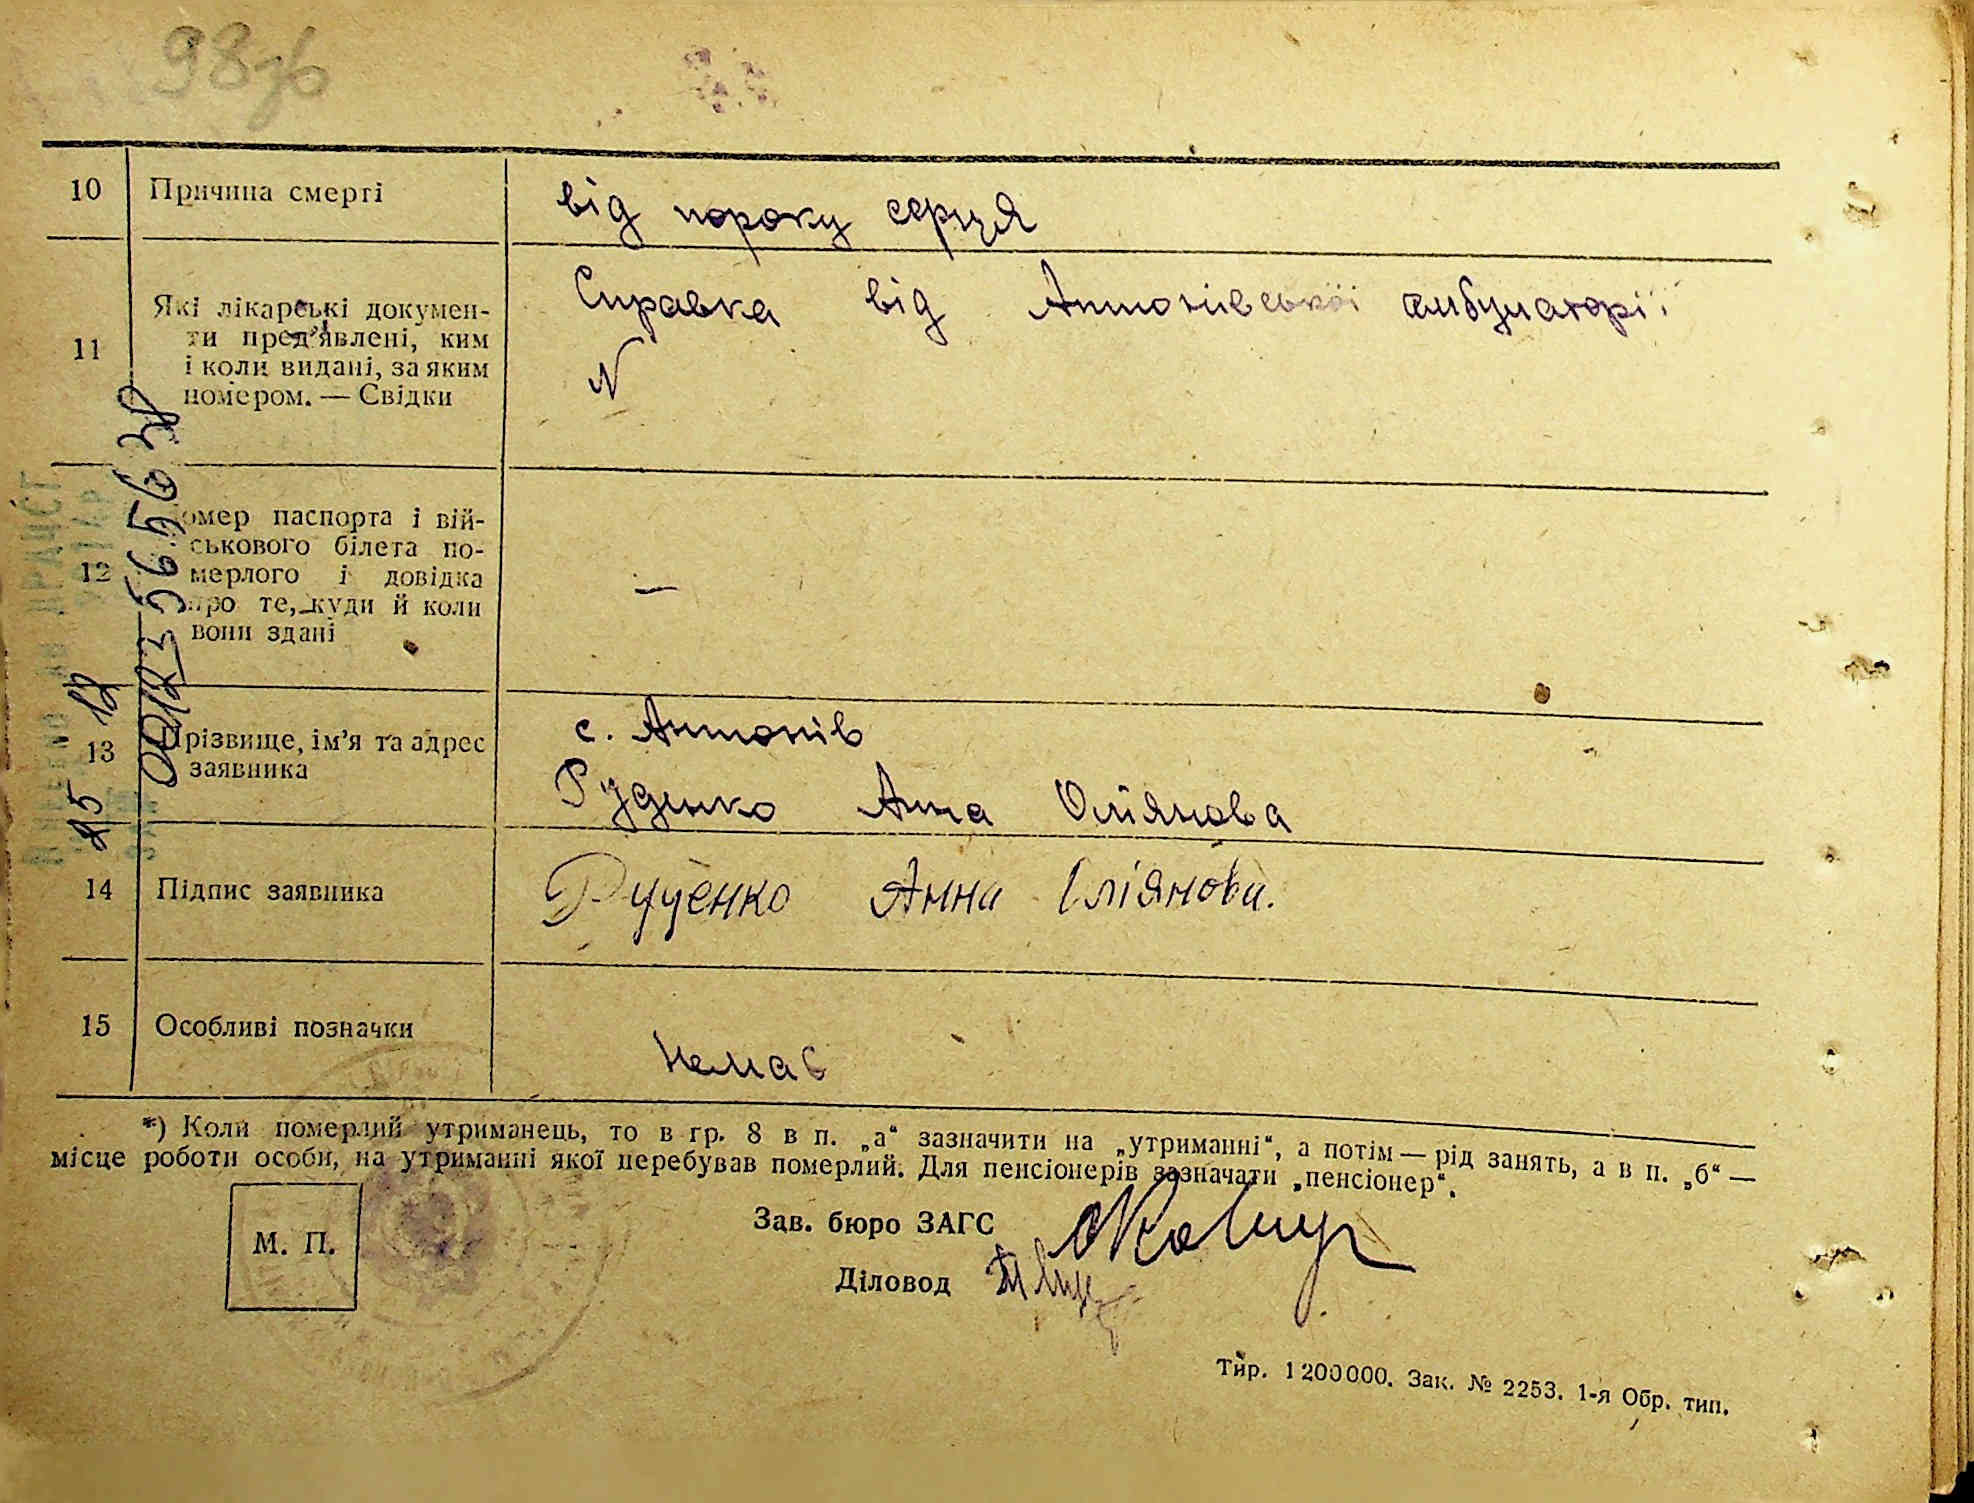 98зв
10 Причина смерті
від пороку серця
11 Які лікарські докумен-
ти пред’явлені, ким
і коли видані, за яким
номером. — Свідки
Справка від Антонівської амбулаторії
N
12 омер паспорта і вій-
ськового білета по-
мерлого і довідка
про те, куди й коли
вони здані
—
13 Прізвище, ім’я та адрес
заявника
с. Антонів
Руденко Анна Оліянова
14 Підпис заявника
Руденко Анна Іліянова.
15 Особливі позначки
Немає
*) Коли померлий утриманець, то в гр. 8 в п. „а“ зазначити на „утриманні“, а потім — рід занять, а в п. „б“ —
місце роботи особи, на утриманні якої перебував померлий. Для пенсіонерів зазначати „пенсіонер“.
М. П.
Зав. бюро ЗАГС
Діловод
Тир. 1200000. Зак. № 2253. 1-я Обр. тип.